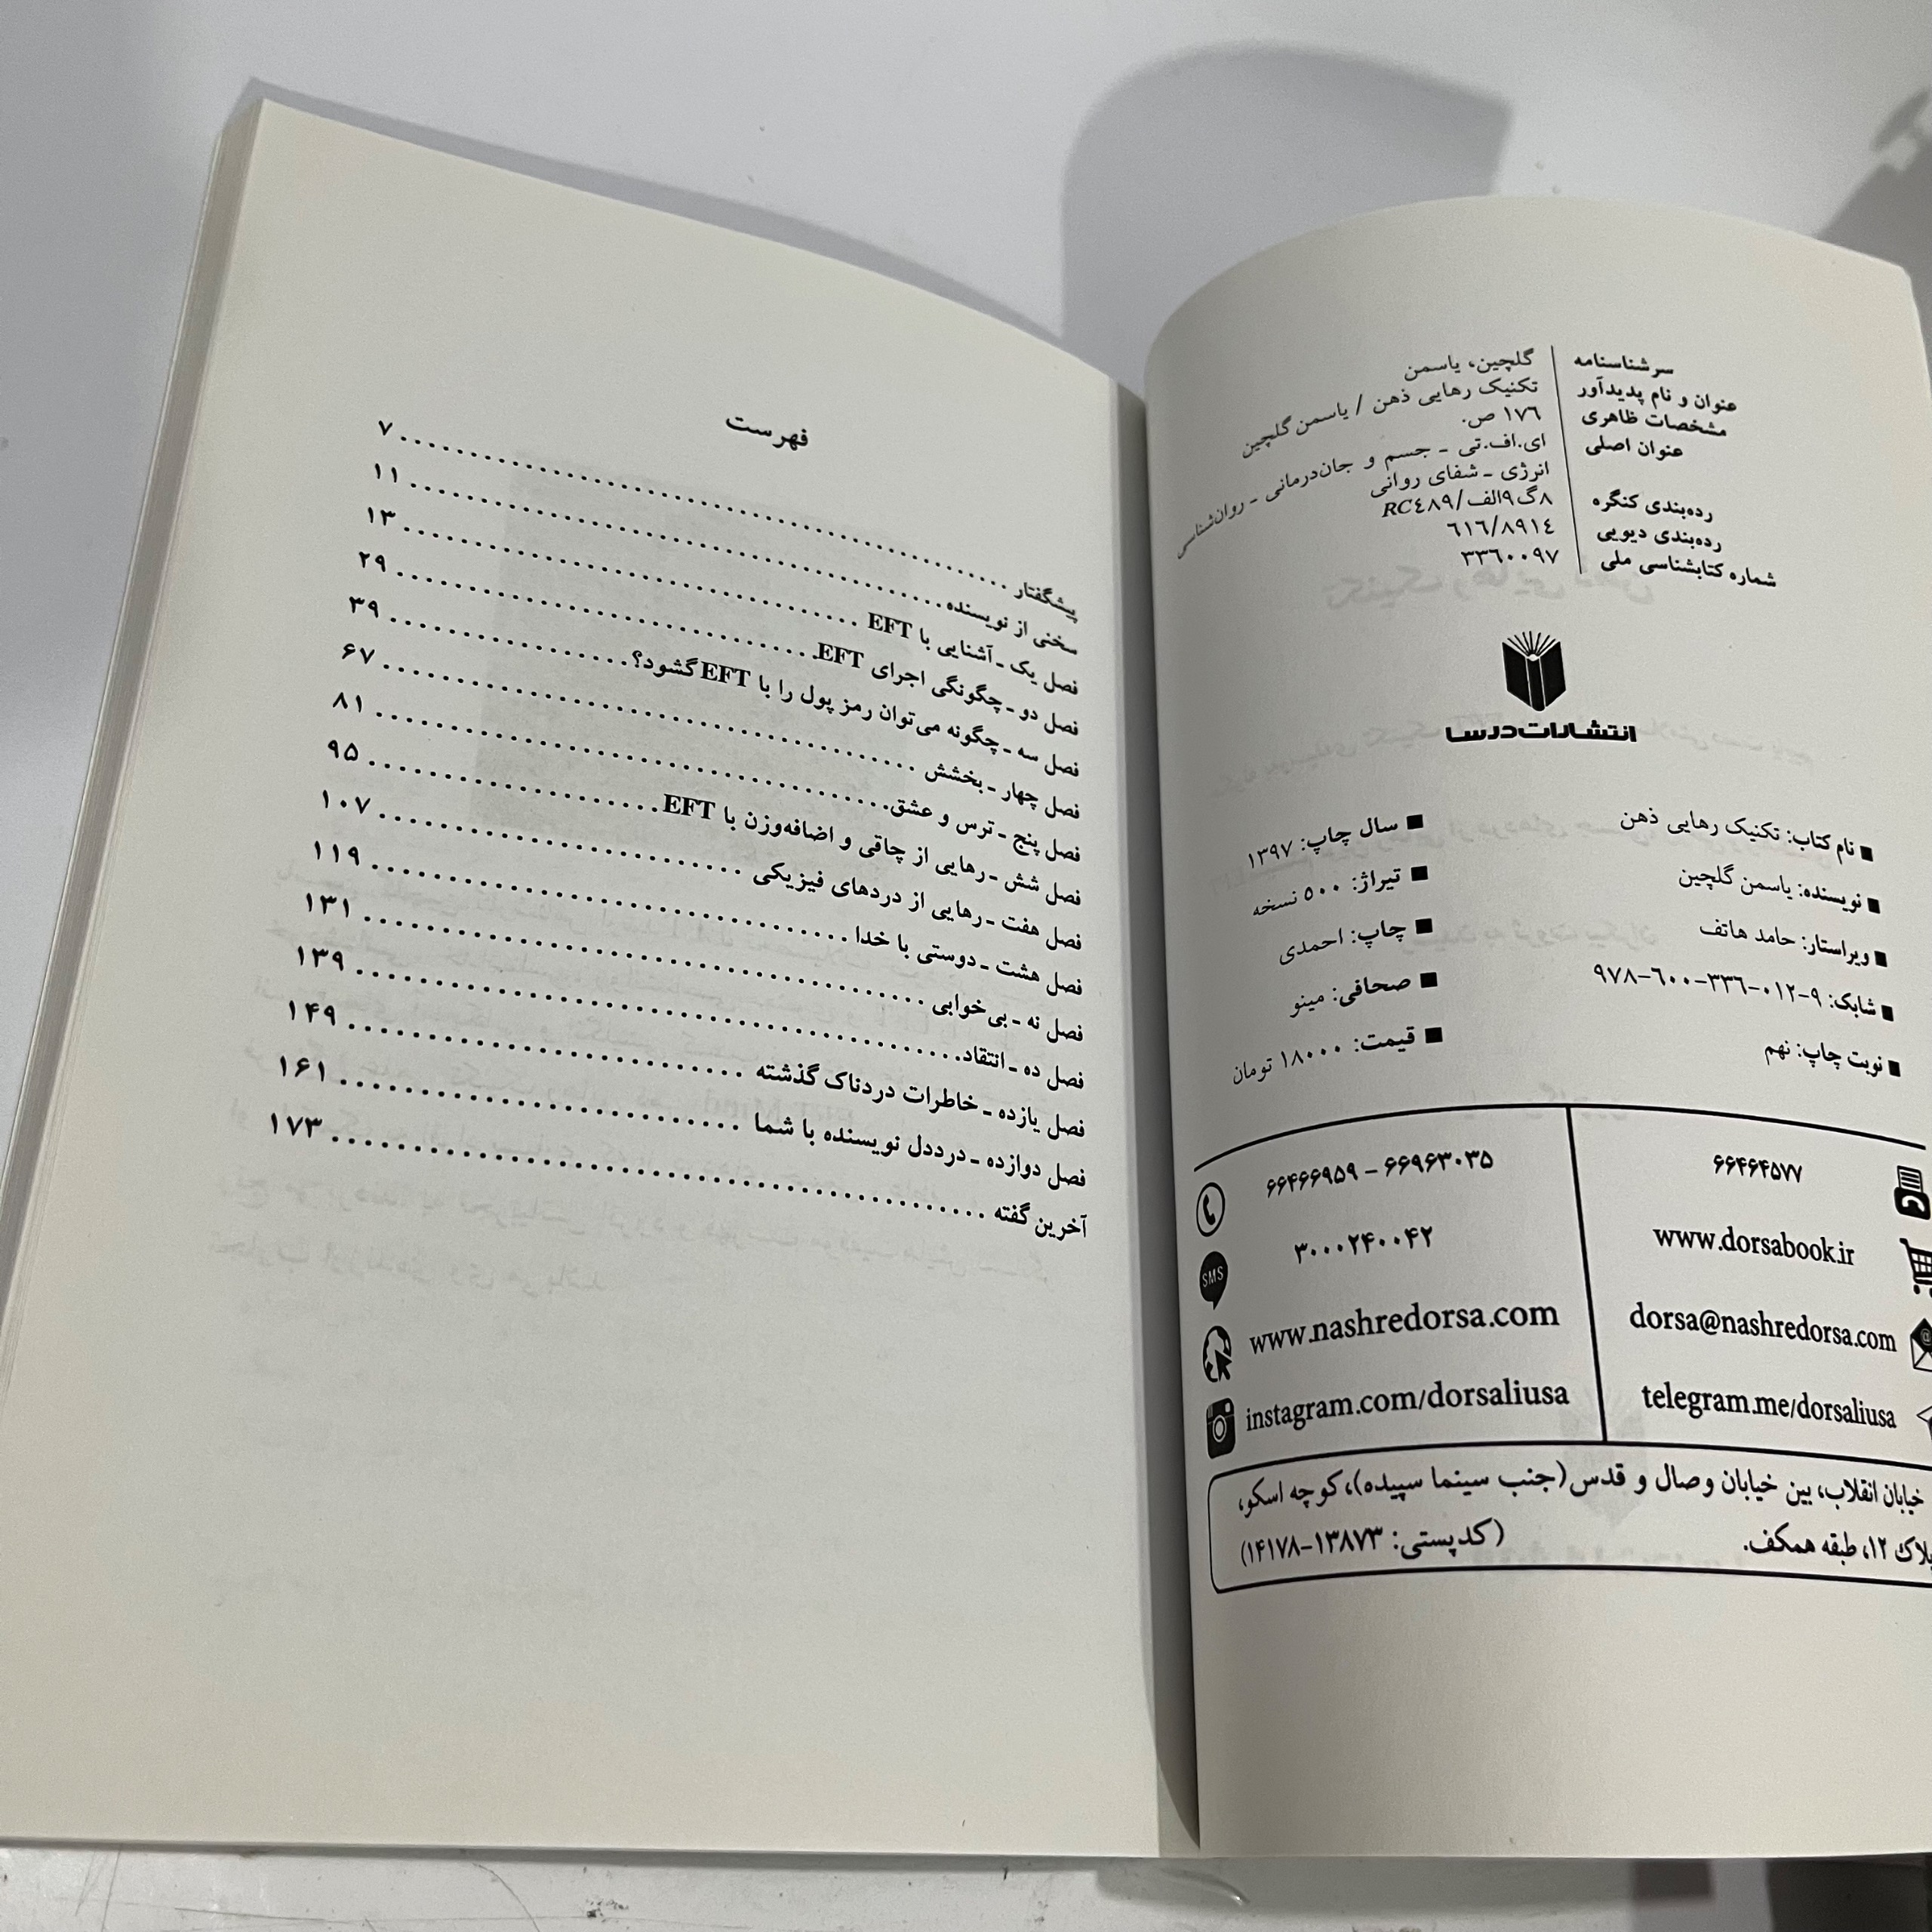 سرشناسنامه گلچین، یاسمن
عنوان و نام پدیدآور تکنیک رهایی ذهن / یاسمن گلچین
مشخصات ظاهری ۱۷٦ ص.
عنوان اصلی ای.اف.تی - جسم و جان‌درمانی - روان‌شناسی
انرژی - شفای روانی
رده‌بندی کنگره ۸گ۹الف/RC٤۸۹
رده‌بندی دیویی ٦۱٦/۸۹۱٤
شماره کتابشناسی ملی ۳۳٦۰۰۹۷
انتشارات درسا
■ نام کتاب: تکنیک رهایی ذهن
■ نویسنده: یاسمن گلچین
■ ویراستار: حامد هاتف
■ شابک: ۹-۰۱۲-۳۳٦-٦۰۰-۹۷۸
■ نوبت چاپ: نهم
■ سال چاپ: ۱۳۹۷
■ تیراژ: ۵۰۰ نسخه
■ چاپ: احمدی
■ صحافی: مینو
■ قیمت: ۱۸۰۰۰ تومان
۶۶۴۶۴۵۷۷
www.dorsabook.ir
dorsa@nashredorsa.com
telegram.me/dorsaliusa
۶۶۴۶۶۹۵۹ - ۶۶۹۶۳۰۳۵
SMS ۳۰۰۰۲۴۰۰۴۲
www.nashredorsa.com
instagram.com/dorsaliusa
خیابان انقلاب، بین خیابان وصال و قدس(جنب سینما سپیده)، کوچه اسکو،
پلاک ۱۲، طبقه همکف. (کدپستی: ۱۳۸۷۳-۱۴۱۷۸)
فهرست
پیشگفتار ........ ۷
سخنی از نویسنده ........ ۱۱
فصل یک ـ آشنایی با EFT ........ ۱۳
فصل دو ـ چگونگی اجرای EFT ........ ۲۹
فصل سه ـ چگونه می‌توان رمز پول را با EFT گشود؟ ........ ۳۹
فصل چهار ـ بخشش ........ ۶۷
فصل پنج ـ ترس و عشق ........ ۸۱
فصل شش ـ رهایی از چاقی و اضافه‌وزن با EFT ........ ۹۵
فصل هفت ـ رهایی از دردهای فیزیکی ........ ۱۰۷
فصل هشت ـ دوستی با خدا ........ ۱۱۹
فصل نه ـ بی‌خوابی ........ ۱۳۱
فصل ده ـ انتقاد ........ ۱۳۹
فصل یازده ـ خاطرات دردناک گذشته ........ ۱۴۹
فصل دوازده ـ درددل نویسنده با شما ........ ۱۶۱
آخرین گفته ........ ۱۷۳